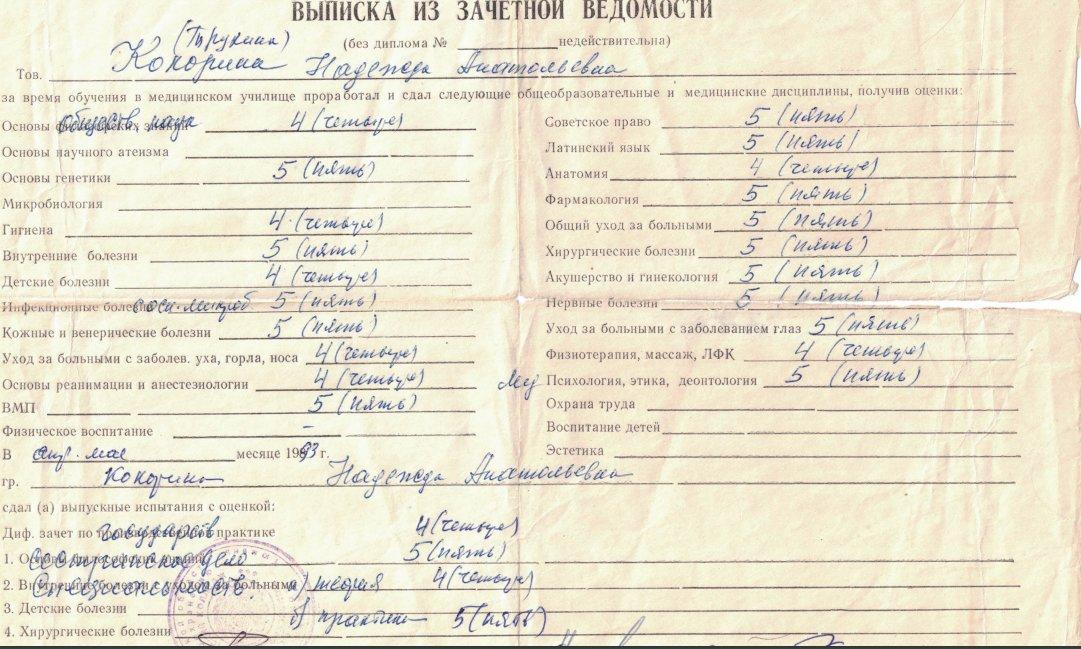 ВЫПИСКА ИЗ ЗАЧЕТНОЙ ВЕДОМОСТИ
(без диплома № недействительна)
Тов. Кокорина Надежда Анатольевна
за время обучения в медицинском училище проработал и сдал следующие общеобразовательные и медицинские дисциплины, получив оценки:
Основы обществ. наук 4 (четыре)
Основы научного атеизма
Основы генетики 5 (пять)
Микробиология
Гигиена 4 (четыре)
Внутренние болезни 5 (пять)
Детские болезни 4 (четыре)
Инфекционные болезни 5 (пять)
Кожные и венерические болезни 5 (пять)
Уход за больными с заболев. уха, горла, носа 4 (четыре)
Основы реанимации и анестезиологии 4 (четыре)
ВМП 5 (пять)
Физическое воспитание –
Советское право 5 (пять)
Латинский язык 5 (пять)
Анатомия 4 (четыре)
Фармакология 5 (пять)
Общий уход за больными 5 (пять)
Хирургические болезни 5 (пять)
Акушерство и гинекология 5 (пять)
Нервные болезни 5 (пять)
Уход за больными с заболеванием глаз 5 (пять)
Физиотерапия, массаж, ЛФК 4 (четыре)
Мед Психология, этика, деонтология 5 (пять)
Охрана труда
Воспитание детей
Эстетика
В апр. мае месяце 1993 г.
гр. Кокорина Надежда Анатольевна
сдал (а) выпускные испытания с оценкой:
Диф. зачет по производственной практике 4 (четыре)
государств
1. Сестринское дело 5 (пять)
2. Внутренние болезни с уходом за больными а) теория 4 (четыре)
Специальность:
3. Детские болезни б) практика 5 (пять)
4. Хирургические болезни